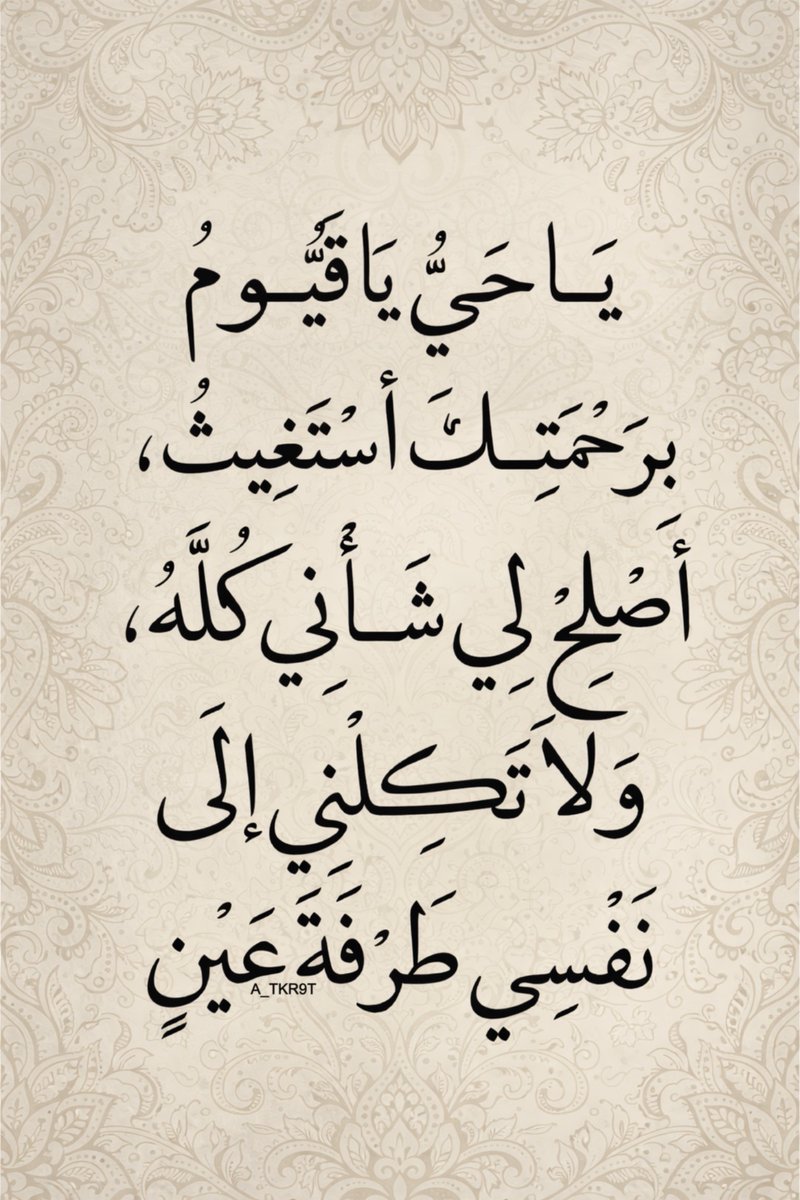 يَا حَيُّ يَا قَيُّومُ
بِرَحْمَتِكَ أَسْتَغِيثُ،
أَصْلِحْ لِي شَأْنِي كُلَّهُ،
وَلَا تَكِلْنِي إِلَى
نَفْسِي طَرْفَةَ عَيْنٍ
A_TKR9T